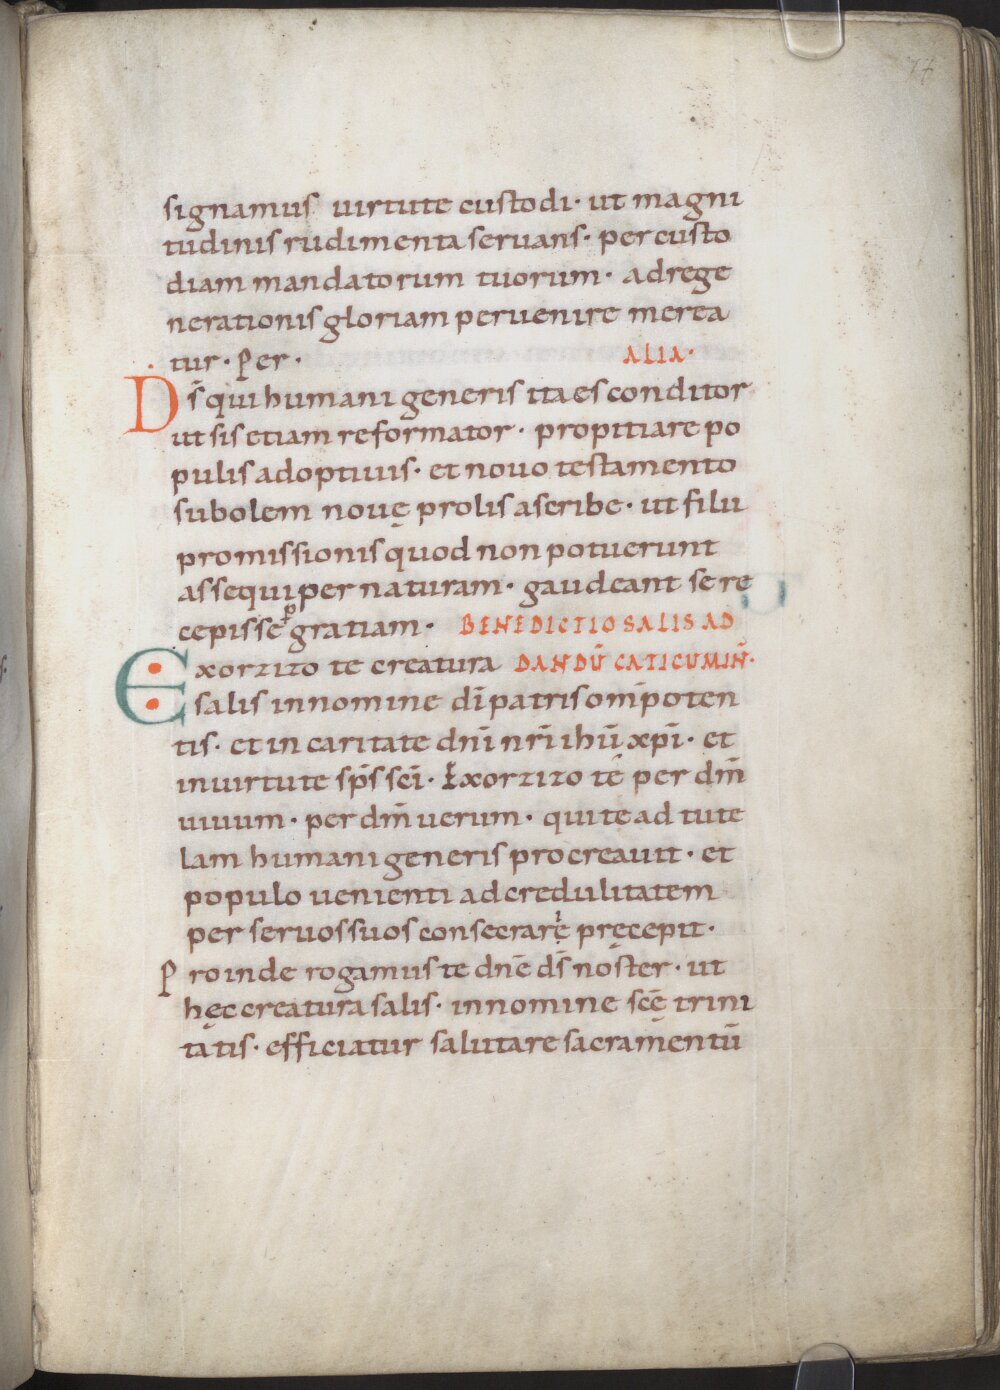 77
signamus uirtute custodi · ut magni
tudinis rudimenta seruans · per custo
diam mandatorum tuorum · ad rege
nerationis gloriam peruenire merea
tur · Per · ALIA ·
Ds̄ qui humani generis ita es conditor
ut sis etiam reformator · propitiare po
pulis adoptiuis · et nouo testamento
subolem nouę prolis ascribe · ut filii
promissionis quod non potuerunt
assequi per naturam · gaudeant se re
cepisse p̄ gratiam · BENEDICTIO SALIS AD
Exorzizo te creatura DANDŪ CATICUMIN̄ ·
salis in nomine dī patris omīpoten
tis · et in caritate dnī nrī ihū xpī · et
in uirtute sps̄ scī · Exorzizo te per dm̄
uiuum · per dm̄ uerum · qui te ad tute
lam humani generis procreauit · et
populo uenienti ad credulitatem
per seruos suos consecrare pręcepit ·
Proinde rogamus te dnē ds̄ noster · ut
hęc creatura salis · in nomine scę̄ trini
tatis · efficiatur salutare sacramentū